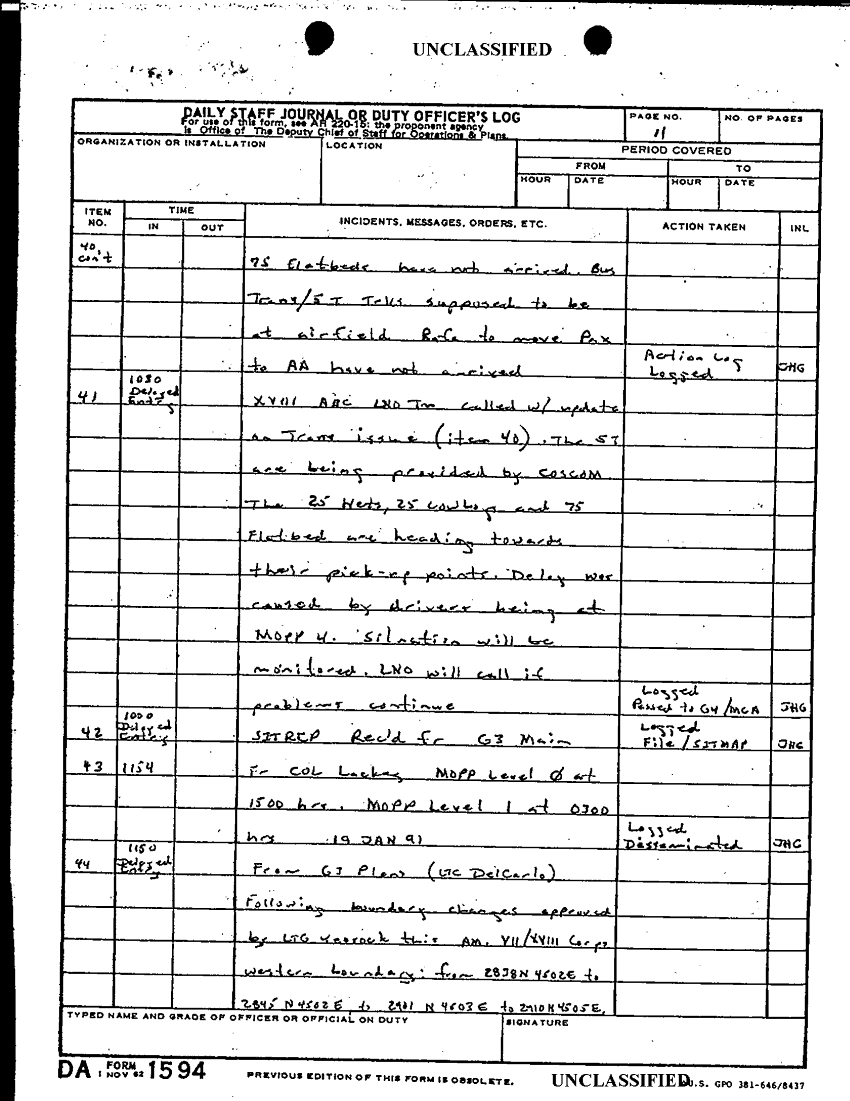 UNCLASSIFIED
DAILY STAFF JOURNAL OR DUTY OFFICER'S LOG
For use of this form, see AR 220-15: the proponent agency
is Office of The Deputy Chief of Staff for Operations & Plans.
PAGE NO.
11
NO. OF PAGES
ORGANIZATION OR INSTALLATION
LOCATION
PERIOD COVERED
FROM
TO
HOUR
DATE
HOUR
DATE
ITEM NO.
TIME
IN
OUT
INCIDENTS, MESSAGES, ORDERS, ETC.
ACTION TAKEN
INL
40, con't
75 Flatbeds have not arrived. Bus
Trans/5 T Trks supposed to be
at airfield Rafa to move Pax
to AA have not arrived
Action Log
Logged
JHG
41
1030
Delayed
Entry
XVIII ABC LNO Tm called w/ update
on Trans issue (item 40). The 5T
are being provided by COSCOM
The 25 Hets, 25 Lowboy and 75
Flatbed are heading towards
their pick-up points. Delay was
caused by drivers being at
MOPP 4. Situation will be
monitored. LNO will call if
problems continue
Logged
Passed to G4/MCA
JHG
42
1000
Delayed
Entry
SITREP Rec'd fr G3 Main
Logged
File/SITMAP
JHG
43
1154
Fr COL Lackey MOPP Level 0 at
1500 hrs. MOPP Level 1 at 0300
hrs 19 JAN 91
Logged
Disseminated
JHG
44
1150
Delayed
Entry
From G3 Plans (LTC DelCarlo)
Following boundary changes approved
by LTG Yeosock this AM. VII/XVIII Corps
western boundary: from 2838N 4502E to
2845 N 4502 E to 2901 N 4603 E to 2910N 4505E,
TYPED NAME AND GRADE OF OFFICER OR OFFICIAL ON DUTY
SIGNATURE
DA FORM 1 NOV 62 1594
PREVIOUS EDITION OF THIS FORM IS OBSOLETE.
UNCLASSIFIED
U.S. GPO 381-646/8437